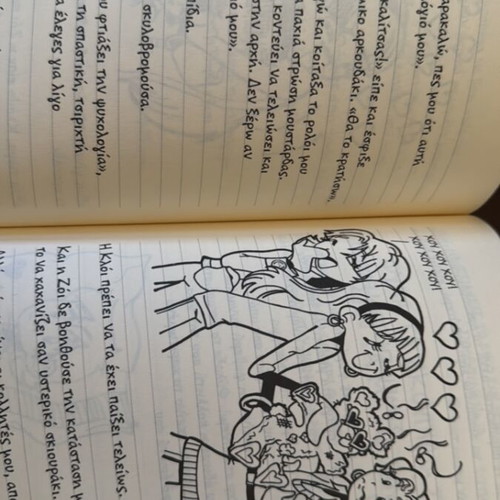 αρακαλώ, πες μου ότι αυτή
όγιό μου».
καλίτσας!» είπε και έσφιξε
ικο αρκουδάκι. «Θα το κρατήσω»,
γώ και κοίταξα το ρολόι μου
α παχιά στρώση μουστάρδας.
κοντεύει να τελειώσει και
στην αρχή. Δεν ξέρω αν
ιό μου».
ίδια.
σκυλοβρομούσα.
ου φτιάξει την ψυχολογία»,
τη σπαστική, τσιριχτή
α έλεγες για λίγο
ΧΟΥ ΧΟΥ ΧΟΥ!
ΧΟΥ ΧΟΥ ΧΟΥ!
Η Κλόι πρέπει να τα έχει παίξει τελείως.
Και η Ζόι δε βοηθούσε την κατάσταση μ
το να χαχανίζει σαν υστερικό σκιουράκι.
κολλητές μου, απ